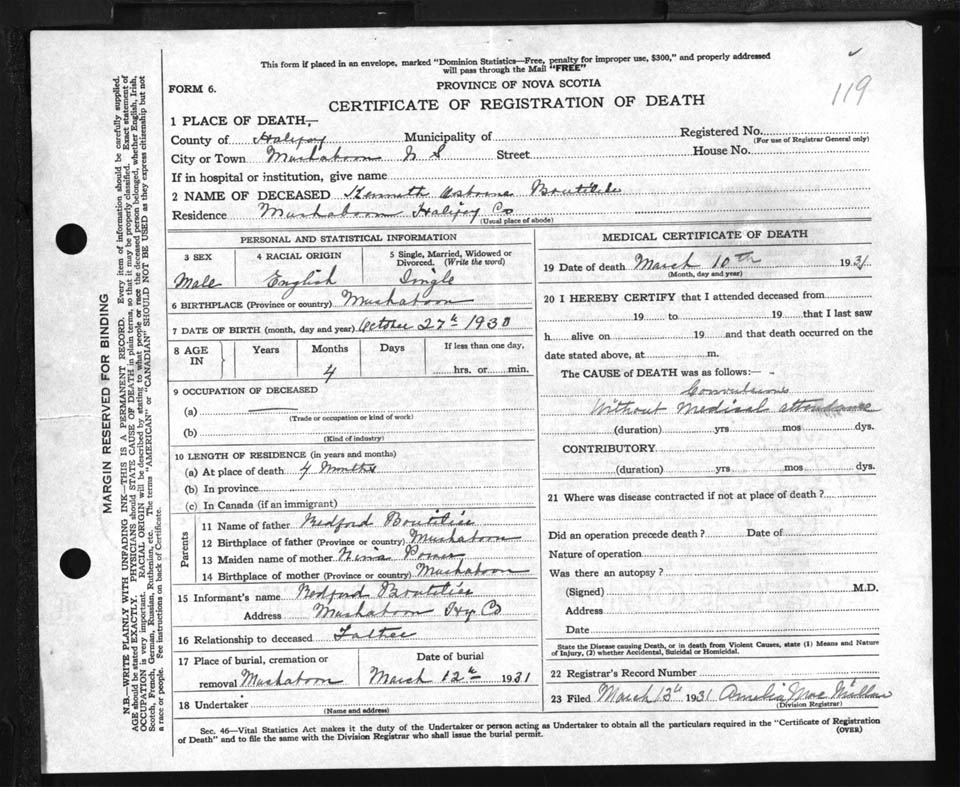 This form if placed in an envelope, marked "Dominion Statistics—Free, penalty for improper use, $300," and properly addressed
will pass through the Mail "FREE"
119
FORM 6.
PROVINCE OF NOVA SCOTIA
CERTIFICATE OF REGISTRATION OF DEATH
1 PLACE OF DEATH,—
County of Halifax Municipality of Registered No.
(For use of Registrar General only)
City or Town Mushaboom N S Street House No.
If in hospital or institution, give name
2 NAME OF DECEASED Kenneth Osborne Boutilier
Residence Mushaboom Halifax Co
(Usual place of abode)
PERSONAL AND STATISTICAL INFORMATION
3 SEX 4 RACIAL ORIGIN 5 Single, Married, Widowed or
Divorced. (Write the word)
Male English Single
6 BIRTHPLACE (Province or country) Mushaboom
7 DATE OF BIRTH (month, day and year) October 27th 1930
8 AGE IN Years Months Days If less than one day,
4 hrs. or min.
9 OCCUPATION OF DECEASED
(a)
(Trade or occupation or kind of work)
(b)
(Kind of industry)
10 LENGTH OF RESIDENCE (in years and months)
(a) At place of death 4 Months
(b) In province
(c) In Canada (if an immigrant)
Parents
11 Name of father Redford Boutilier
12 Birthplace of father (Province or country) Mushaboom
13 Maiden name of mother Nina Power
14 Birthplace of mother (Province or country) Mushaboom
15 Informant's name Redford Boutilier
Address Mushaboom Hfx Co
16 Relationship to deceased Father
17 Place of burial, cremation or Date of burial
removal Mushaboom March 12th 1931
18 Undertaker
(Name and address)
MEDICAL CERTIFICATE OF DEATH
19 Date of death March 10th 1931
(Month, day and year)
20 I HEREBY CERTIFY that I attended deceased from
19 to 19 that I last saw
h alive on 19 and that death occurred on the
date stated above, at m.
The CAUSE of DEATH was as follows:—
Convulsions
Without Medical attendance
(duration) yrs mos dys.
CONTRIBUTORY
(duration) yrs mos dys.
21 Where was disease contracted if not at place of death ?
Did an operation precede death ? Date of
Nature of operation
Was there an autopsy ?
(Signed) M.D.
Address
Date
State the Disease causing Death, or in death from Violent Causes, state (1) Means and Nature
of Injury, (2) whether Accidental, Suicidal or Homicidal.
22 Registrar's Record Number
23 Filed March 13th 1931 Amelia Mac
(Division Registrar)
Sec. 46—Vital Statistics Act makes it the duty of the Undertaker or person acting as Undertaker to obtain all the particulars required in the "Certificate of Registration
of Death" and to file the same with the Division Registrar who shall issue the burial permit.
(OVER)
MARGIN RESERVED FOR BINDING
N.B.—WRITE PLAINLY WITH UNFADING INK—THIS IS A PERMANENT RECORD. Every item of information should be carefully supplied.
AGE should be stated EXACTLY. PHYSICIANS should STATE CAUSE OF DEATH in plain terms, so that it may be properly classified. Exact statement of
OCCUPATION is very important. RACIAL ORIGIN will be described by stating to what people or race the deceased person belonged, whether English, Irish,
Scotch, French, German, Russian, Ruthenian, etc. The terms "AMERICAN" or "CANADIAN" SHOULD NOT BE USED as they express citizenship but not
a race or people. See instructions on back of Certificate.